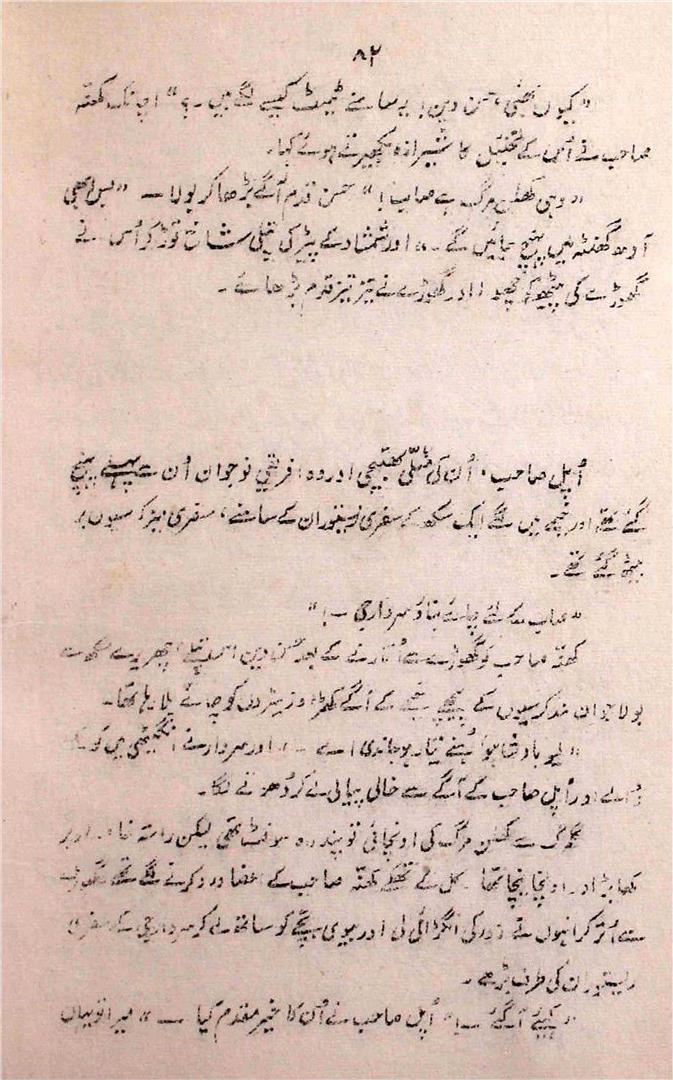 ۸۲
"کیوں بھئی حسن دین! یہ سامنے ٹینٹ کیسے لگے ہیں ۔ ؟" اچانک کھنّہ
صاحب نے اُس کے تخیل کا شیرازہ بکھیرتے ہوئے کہا۔
"وہی کھلن مرگ ہے صاب!" حسن قدم آگے بڑھا کر بولا — "بس ابھی
آدھ گھنٹہ میں پہنچ جائیں گے ۔" اور شمشاد کے پیڑ کی پتلی شاخ توڑ کر اُس نے
گھوڑے کی پیٹھ کو چھوا اور گھوڑے نے تیز تیز قدم بڑھائے ۔
اُپل صاحب، اُن کی بھتیجی اور وہ افریقی نوجوان اُن سے پہلے پہنچ
گئے تھے اور خیمے میں لگے ایک سکھ کے سفری ریستوران کے سامنے، سفری کرسیوں پر
بیٹھ گئے تھے ۔
"صاب کے لئے چائے بناؤ سردار جی — !"
کھنّہ صاحب کو گھوڑے سے اُتارنے کے بعد حسن دین اس پتلے چھریرے سکھ سے
بولا جو ان کرسیوں کے پیچھے خیمے کے آگے کھڑا وزیٹروں کو چائے پلا رہا تھا۔
"لیو بادشاہو! ہُنے تیار ہو جاندی اے —" اور سردار نے انگیٹھی میں کوئلے
ڈالے اور اُپل صاحب کے آگے سے خالی پیالی لے کر دھونے لگا۔
گلمرگ سے کھلن مرگ کی اونچائی تو پندرہ سو فٹ تھی لیکن راستہ خاصا اوبڑ
کھابڑ اور اونچا نیچا تھا ۔ کل کے تھکے کھنّہ صاحب کے اعضا درد کرنے لگے تھے گھوڑے
سے اُتر کر انہوں نے زور کی انگڑائی لی اور بیوی بچے کو ساتھ لے کر سردار جی کے سفری
ریستوران کی طرف بڑھے ۔
"کہیئے آگئے — !" اُپل صاحب نے اُن کا خیر مقدم کیا — "میرا تو یہاں